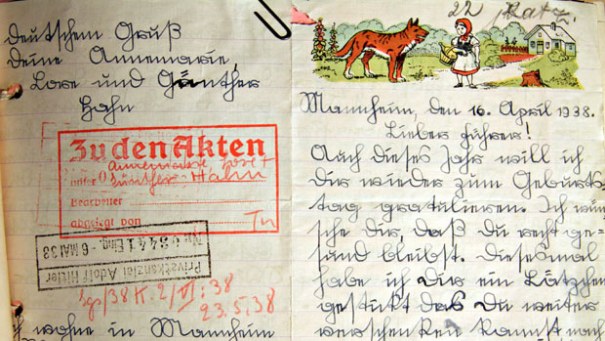 deutschem Gruß
Deine Annemarie,
Lore und Günther
Hahn
Zu den Akten
Annemarie, Lore +
unter Günther Hahn
Bearbeiter
abgelegt von
Privatkanzlei Adolf Hitler
Eing. - 6 MAI 38
23.5.38
h wohne in Mannheim
22
Mannheim, den 16. April 1938.
Lieber Führer!
Auch dieses Jahr will ich
Dir wieder zum Geburts-
tag gratulieren. Ich wün-
sche dir, daß du recht ge-
sund bleibst. Diesesmal
habe ich dir ein Lätzchen
gestickt das Du weiter
verschenken kannst nach